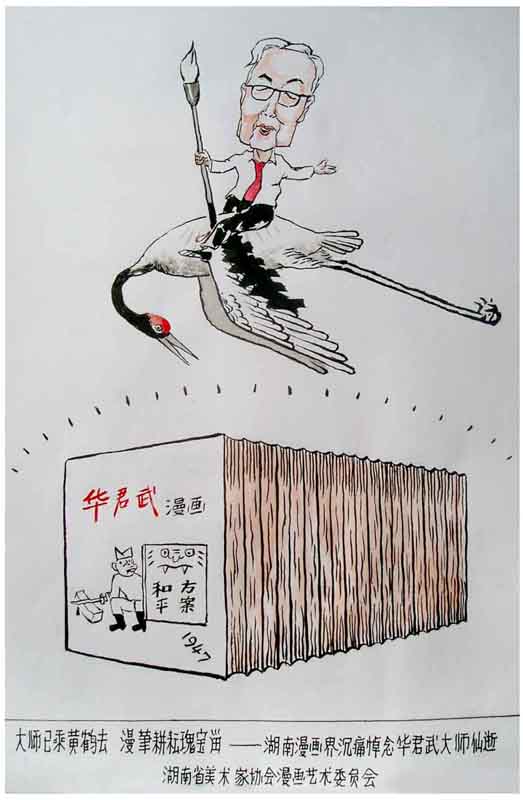 华君武 漫画
和平
方案
1947
大师已乘黄鹤去 漫筆耕耘瑰宝畄——湖南漫画界沉痛悼念华君武大师仙逝
湖南省美术家协会漫画艺术委员会